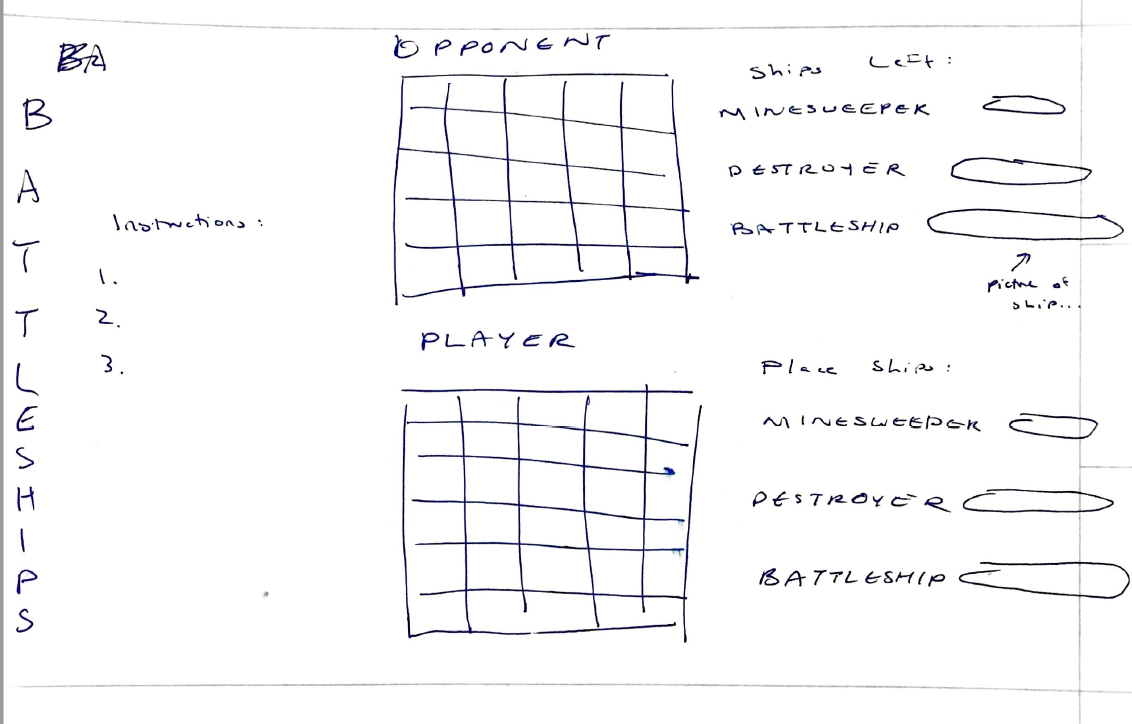 BA
B
A
T
T
L
E
S
H
I
P
S
Instructions :
1.
2.
3.
OPPONENT
Ships Left :
MINESWEEPER
DESTROYER
BATTLESHIP
picture of
ship...
PLAYER
Place Ships :
MINESWEEPER
DESTROYER
BATTLESHIP